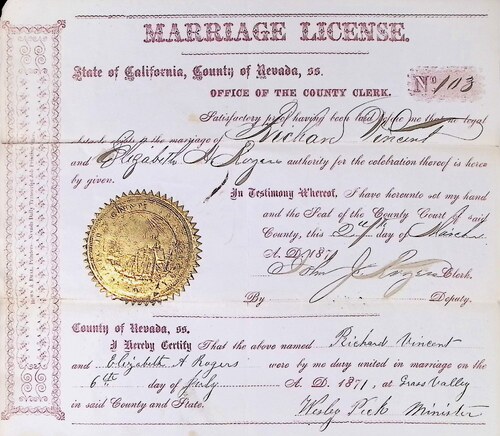 MARRIAGE LICENSE.
State of California, County of Nevada, ss.
OFFICE OF THE COUNTY CLERK.
No 103
Satisfactory proof having been laid before me that no legal
to the marriage of Richard Vincent
and Elizabeth A Rogers authority for the celebration thereof is hereby
given.
In Testimony Whereof, I have hereunto set my hand
and the Seal of the County Court of said
County, this day of March
A. D. 187
John J Rogers Clerk.
By Deputy.
County of Nevada, ss.
I Hereby Certify That the above named Richard Vincent
and Elizabeth A Rogers were by me duly united in marriage on the
6th day of July A. D. 1871, at Grass Valley
in said County and State. Wesley Peck Minister